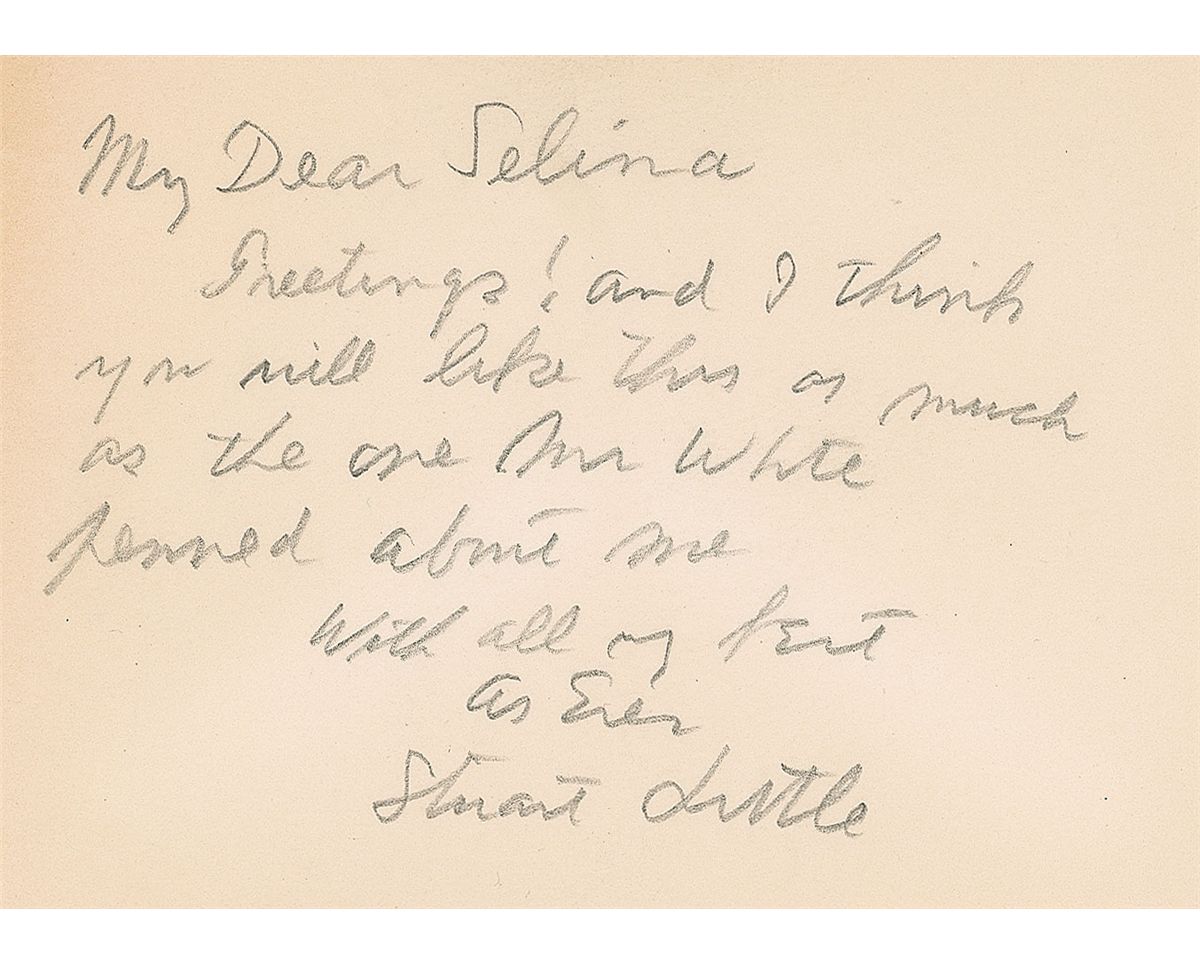 My Dear Selina
Greetings! and I think
you will like this as much
as the one Mr White
penned about me
With all my best
As Ever
Stuart Little